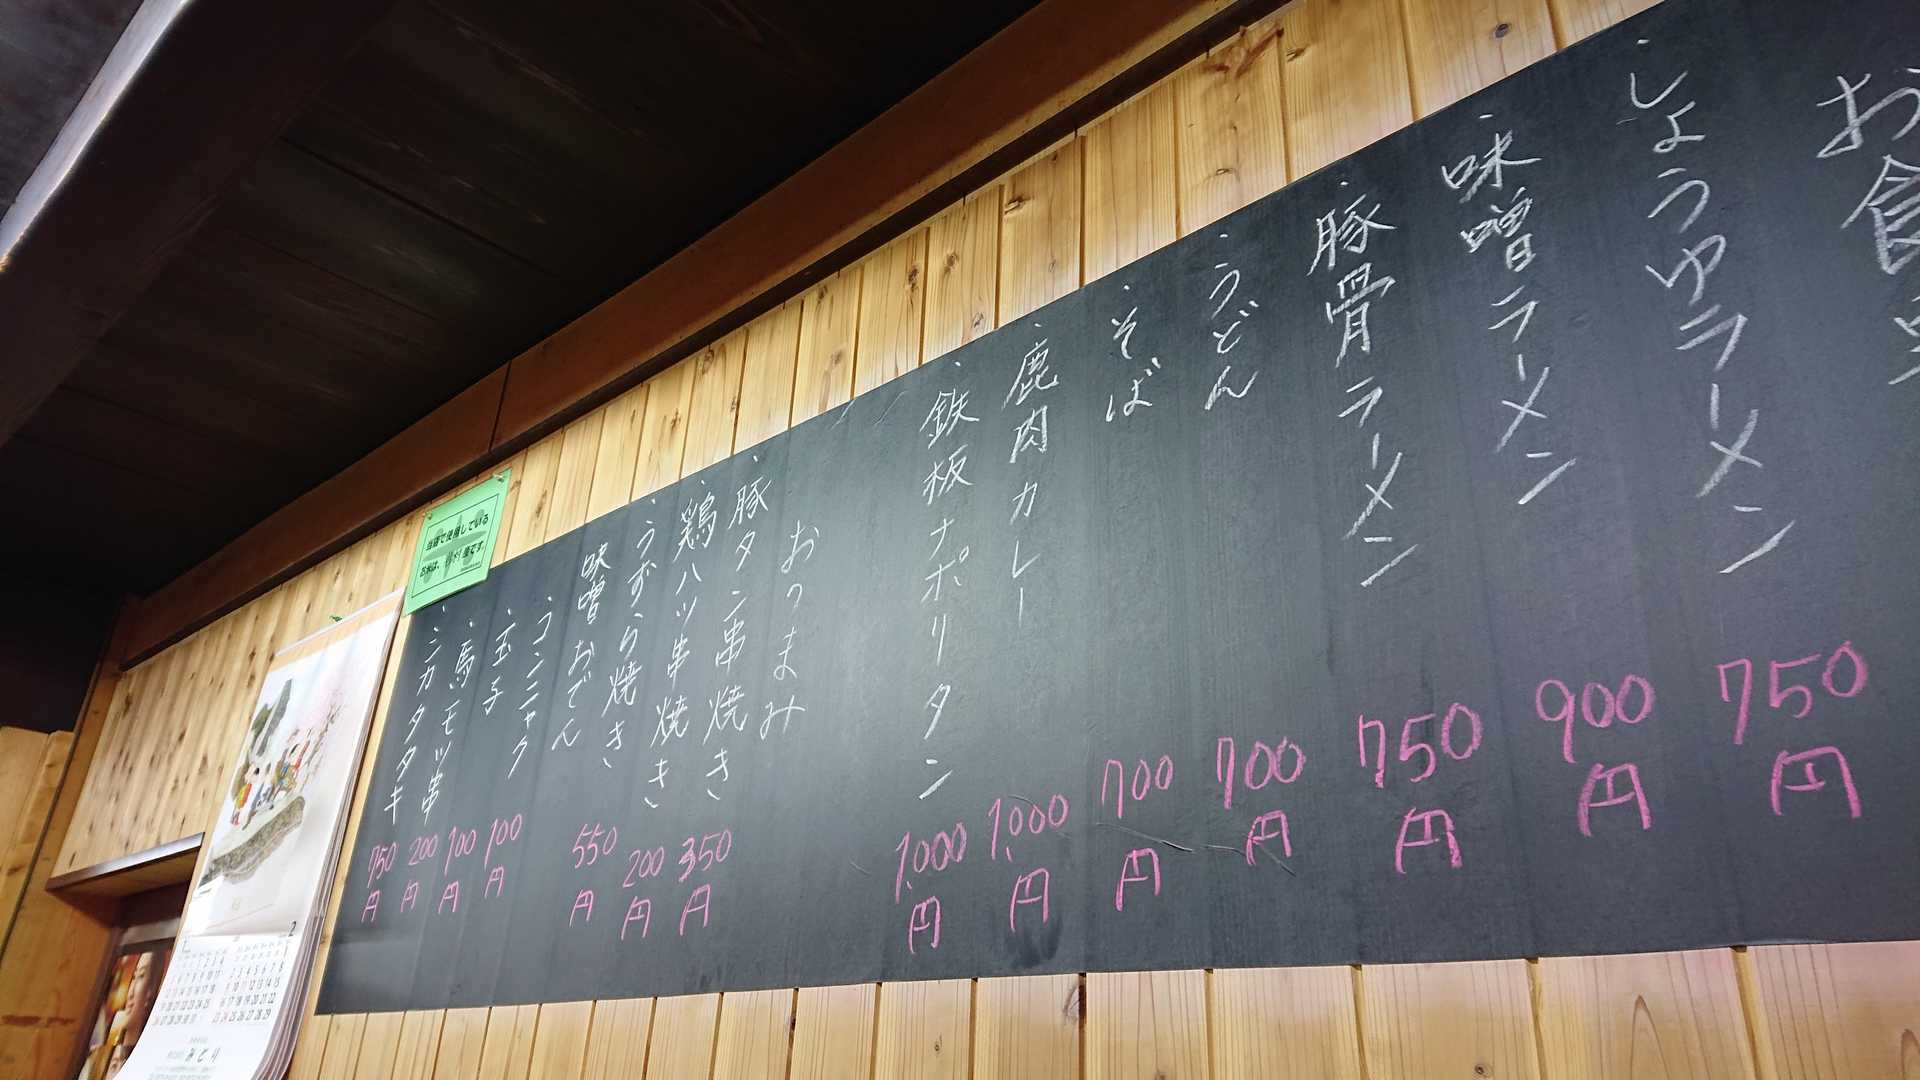 お食事
・しょうゆラーメン 750円
・味噌ラーメン 900円
・豚骨ラーメン 750円
・うどん 700円
・そば 700円
・鹿肉カレー 1,000円
・鉄板ナポリタン 1,000円
おつまみ
・豚タン串焼き 350円
・鶏ハツ串焼き 200円
・うずら焼き 550円
味噌おでん
・コンニャク 100円
・玉子 100円
・馬モツ串 200円
・シカタタキ 750円
当店で使用している
お米は、
産です。
1
2